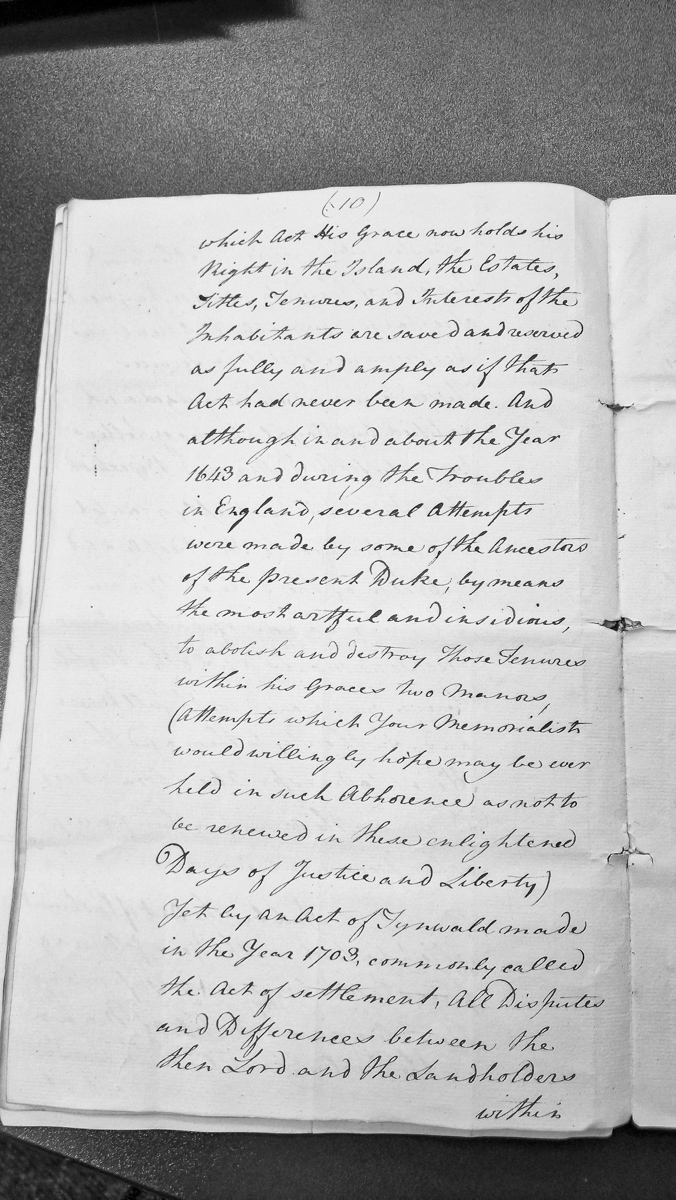 (10)
which Act His Grace now holds his
Right in the Island, the Estates,
Titles, Tenures, and Interests of the
Inhabitants are saved and reserved
as fully and amply as if that
Act had never been made. And
although in and about the Year
1643 and during the Troubles
in England, several Attempts
were made by some of the Ancestors
of the present Duke, by means
the most artful and insidious,
to abolish and destroy those Tenures
within his Graces two Manors,
(Attempts which Your Memorialists
would willingly hope may be ever
held in such Abhorence as not to
be renewed in these enlightened
Days of Justice and Liberty)
Yet by an Act of Tynwald made
in the Year 1703, commonly called
the Act of settlement, All Disputes
and Differences between the
then Lord and the Landholders
within